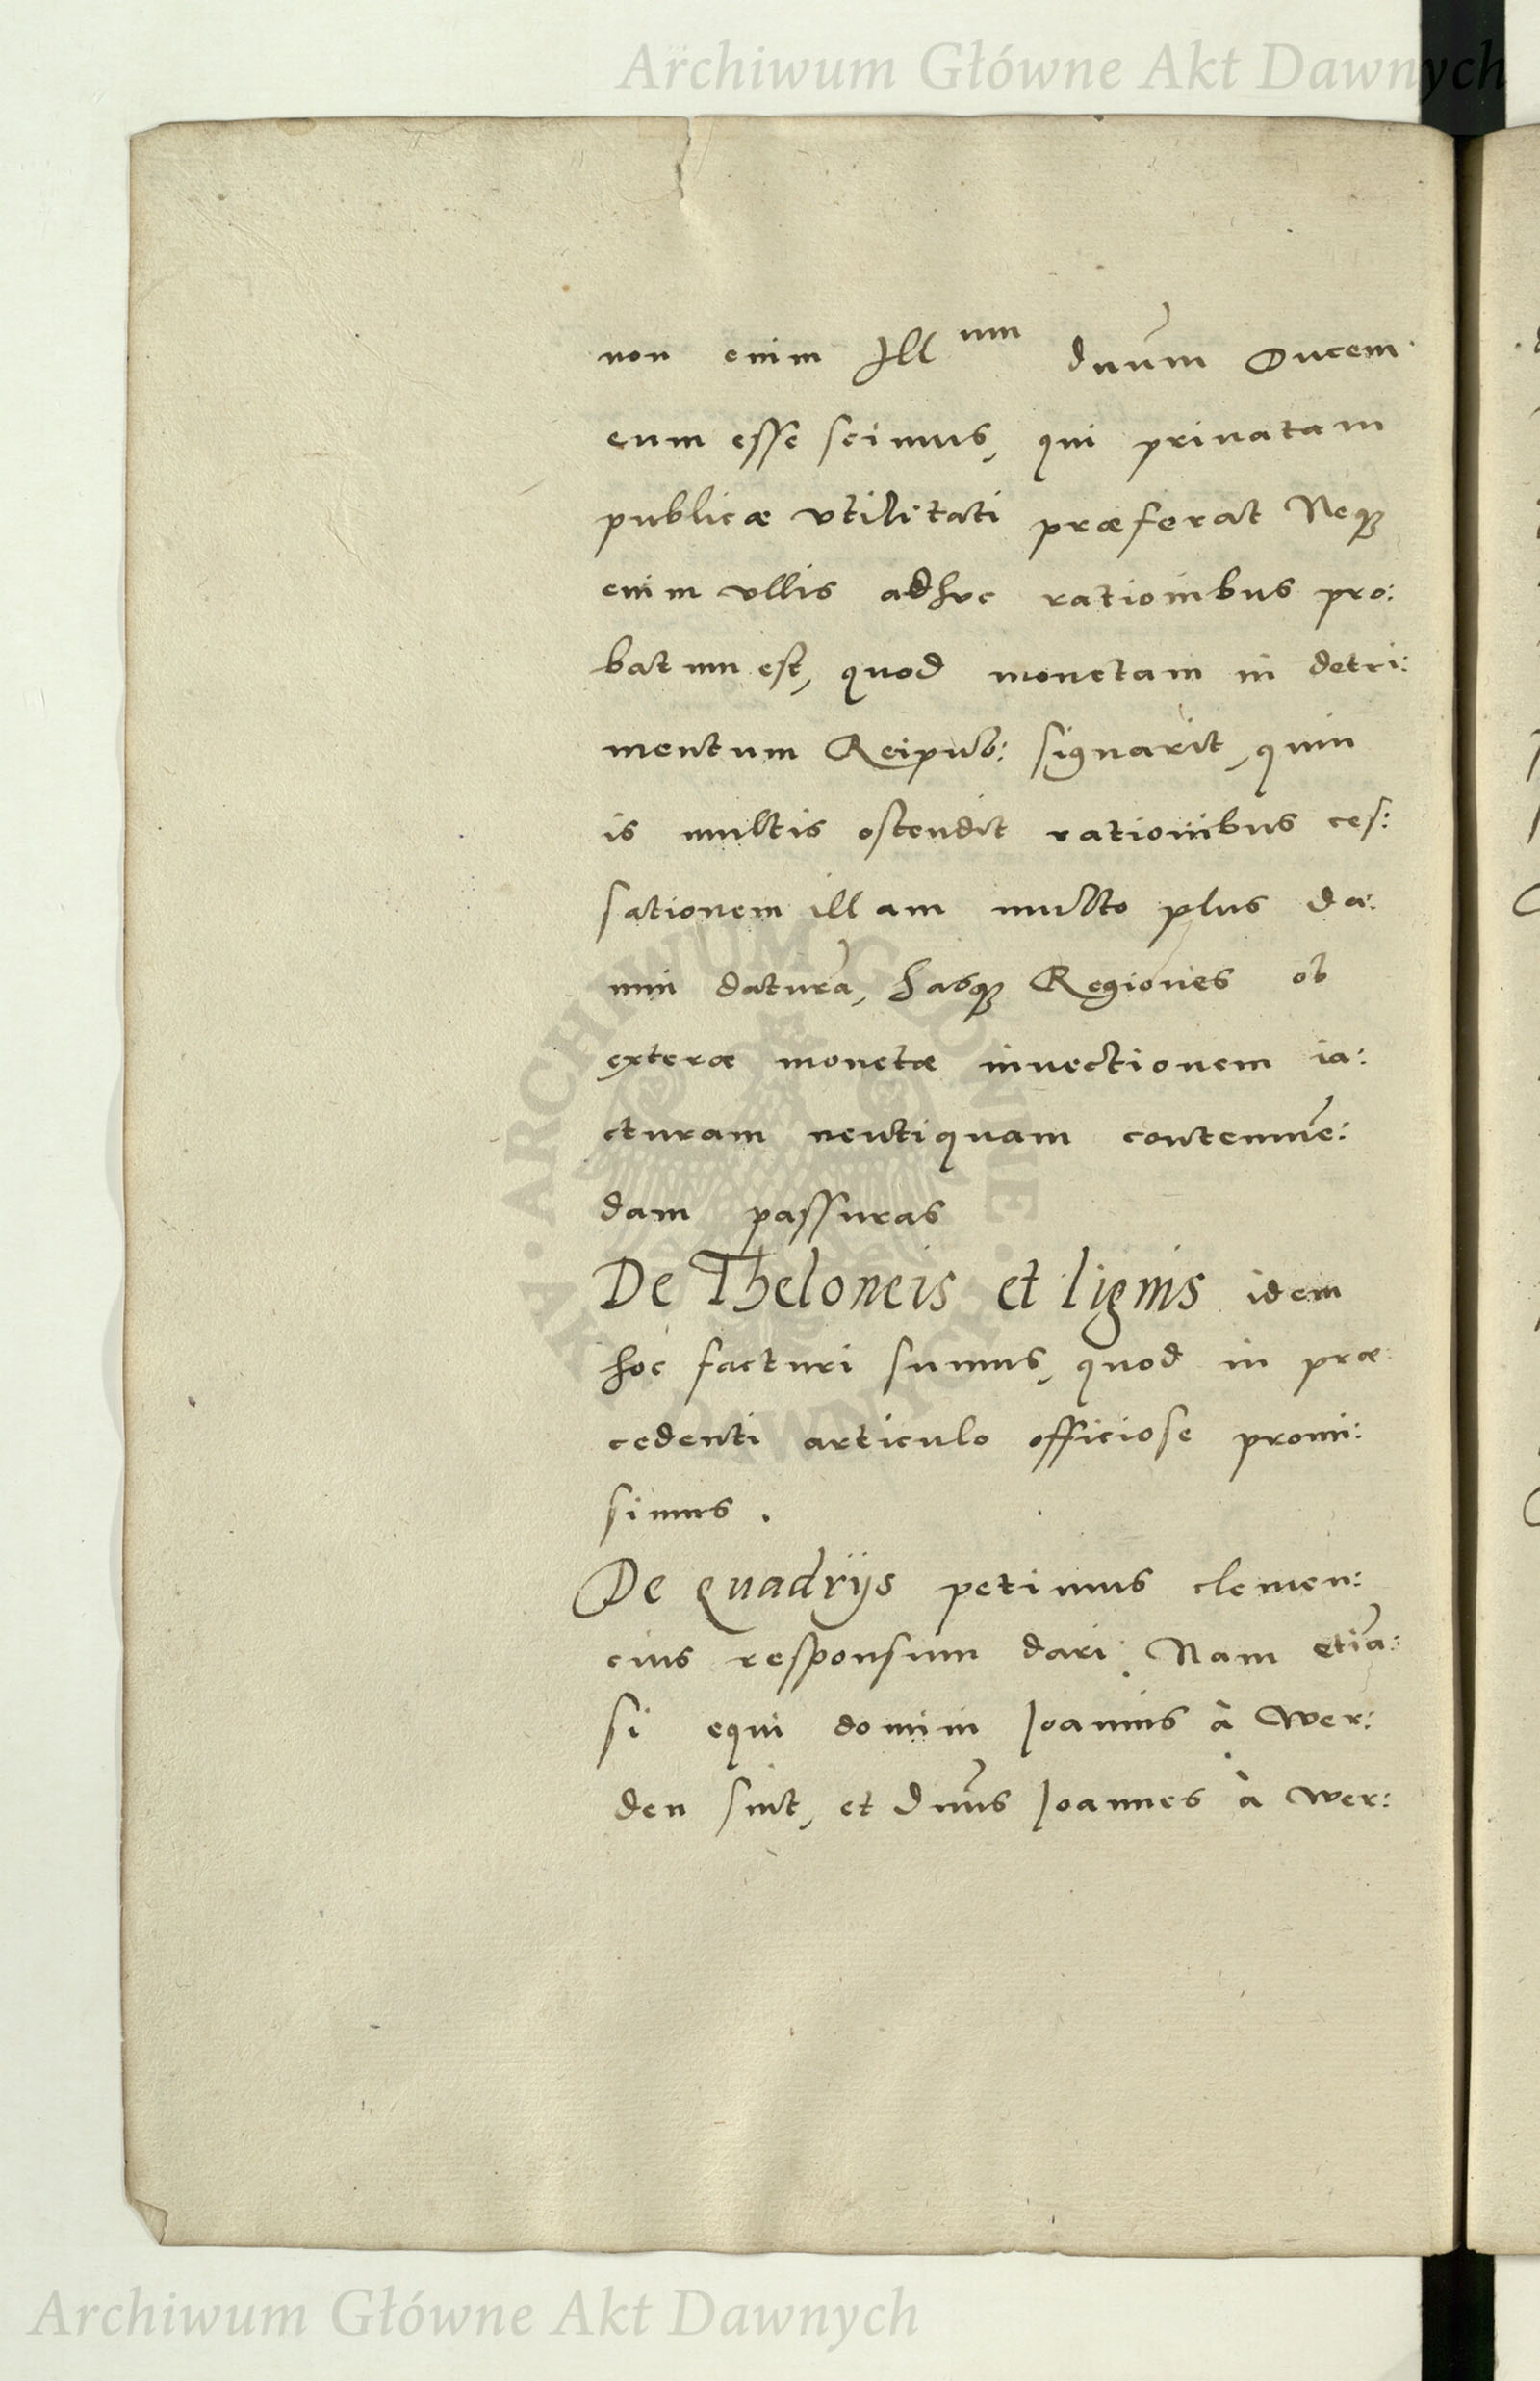 Archiwum Główne Akt Dawnych
non enim Ill um dnūm Ducem
eum esse scimus, qui priuatam
publicæ vtilitati præferat Neqꝫ
enim vllis adhuc rationibus pro:
batum est, quod monetam in detri:
mentum Reipub: signarit, quin
is multis ostendit rationibus ces:
sationem illam multo plus da:
mni daturā, hasqꝫ Regiones ob
exteræ monetæ inuectionem ia:
cturam neutiquam contemnē:
dam passuras
De Theloneis et lignis idem
hoc facturi sumus, quod in præ:
cedenti articulo officiose promi:
simus.
De Quadrijs petimus clemen:
cius responsum dari: Nam etiā:
si equi domini Joannis à Wer:
den sint, et Dnūs Joannes à Wer:
ARCHIWUM GŁÓWNE AKT DAWNYCH
Archiwum Główne Akt Dawnych